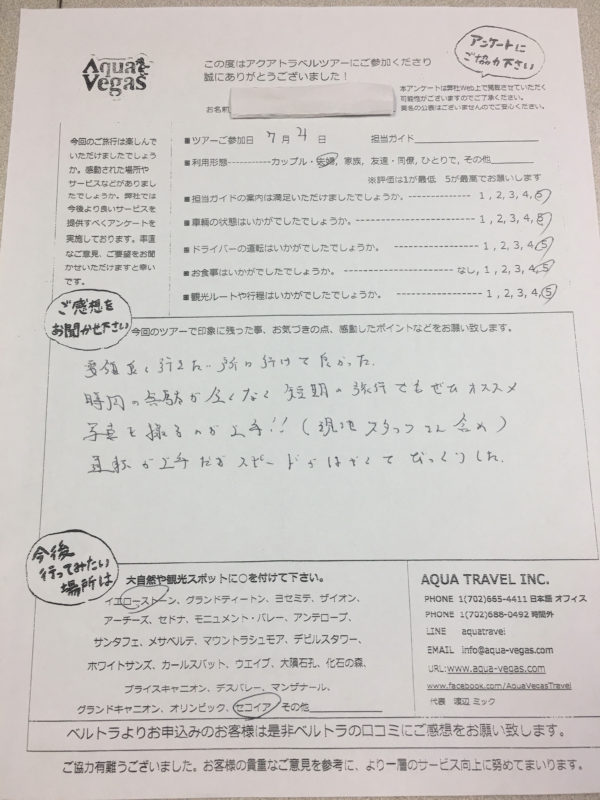 Aqua Vegas
この度はアクアトラベルツアーにご参加くださり
誠にありがとうございました！
アンケートに
ご協力下さい
本アンケートは弊社Web上で掲載させていただく
可能性がございますのでご了承ください。
実名の公表はございませんのでご安心ください。
お名前
今回のご旅行は楽しんで
いただけましたでしょう
か。感動された場所や
サービスなどがありまし
たでしょうか。弊社では
今後より良いサービスを
提供すべくアンケートを
実施しております。率直
なご意見、ご要望をお聞
かせいただけますと幸い
です。
■ツアーご参加日 7 月 4 日 担当ガイド
■利用形態 カップル・夫婦, 家族, 友達・同僚, ひとりで, その他
※評価は1が最低 5が最高でお願いします
■担当ガイドの案内は満足いただけましたでしょうか。 1, 2, 3, 4, 5
■車輌の状態はいかがでしたでしょうか。 1, 2, 3, 4, 5
■ドライバーの運転はいかがでしたでしょうか。 1, 2, 3, 4, 5
■お食事はいかがでしたでしょうか。 なし, 1, 2, 3, 4, 5
■観光ルートや行程はいかがでしたでしょうか。 1, 2, 3, 4, 5
ご感想を
お聞かせ下さい
今回のツアーで印象に残った事、お気づきの点、感動したポイントなどをお願い致します。
要領良く行きたい所に行けて良かった.
時間の無駄が全くなく短期の旅行でもぜひオススメ
写真を撮るのが上手!! (現地スタッフさん含め)
運転が上手だがスピードがはやくてびっくりした.
今後
行ってみたい
場所は
大自然や観光スポットに○を付けて下さい。
イエローストーン、グランドティートン、ヨセミテ、ザイオン、
アーチーズ、セドナ、モニュメント・バレー、アンテロープ、
サンタフェ、メサベルテ、マウントラシュモア、デビルスタワー、
ホワイトサンズ、カールスバット、ウエイブ、大隕石孔、化石の森、
ブライスキャニオン、デスバレー、マンザナール、
グランドキャニオン、オリンピック、セコイア その他
AQUA TRAVEL INC.
PHONE 1(702)665-4411 日本語 オフィス
PHONE 1(702)688-0492 時間外
LINE aquatravel
EMAIL info@aqua-vegas.com
URL:www.aqua-vegas.com
www.facebook.com/AquaVegasTravel
代表 渡辺 ミック
ベルトラよりお申込みのお客様は是非ベルトラの口コミにご感想をお願い致します。
ご協力有難うございました。お客様の貴重なご意見を参考に、より一層のサービス向上に努めてまいります。